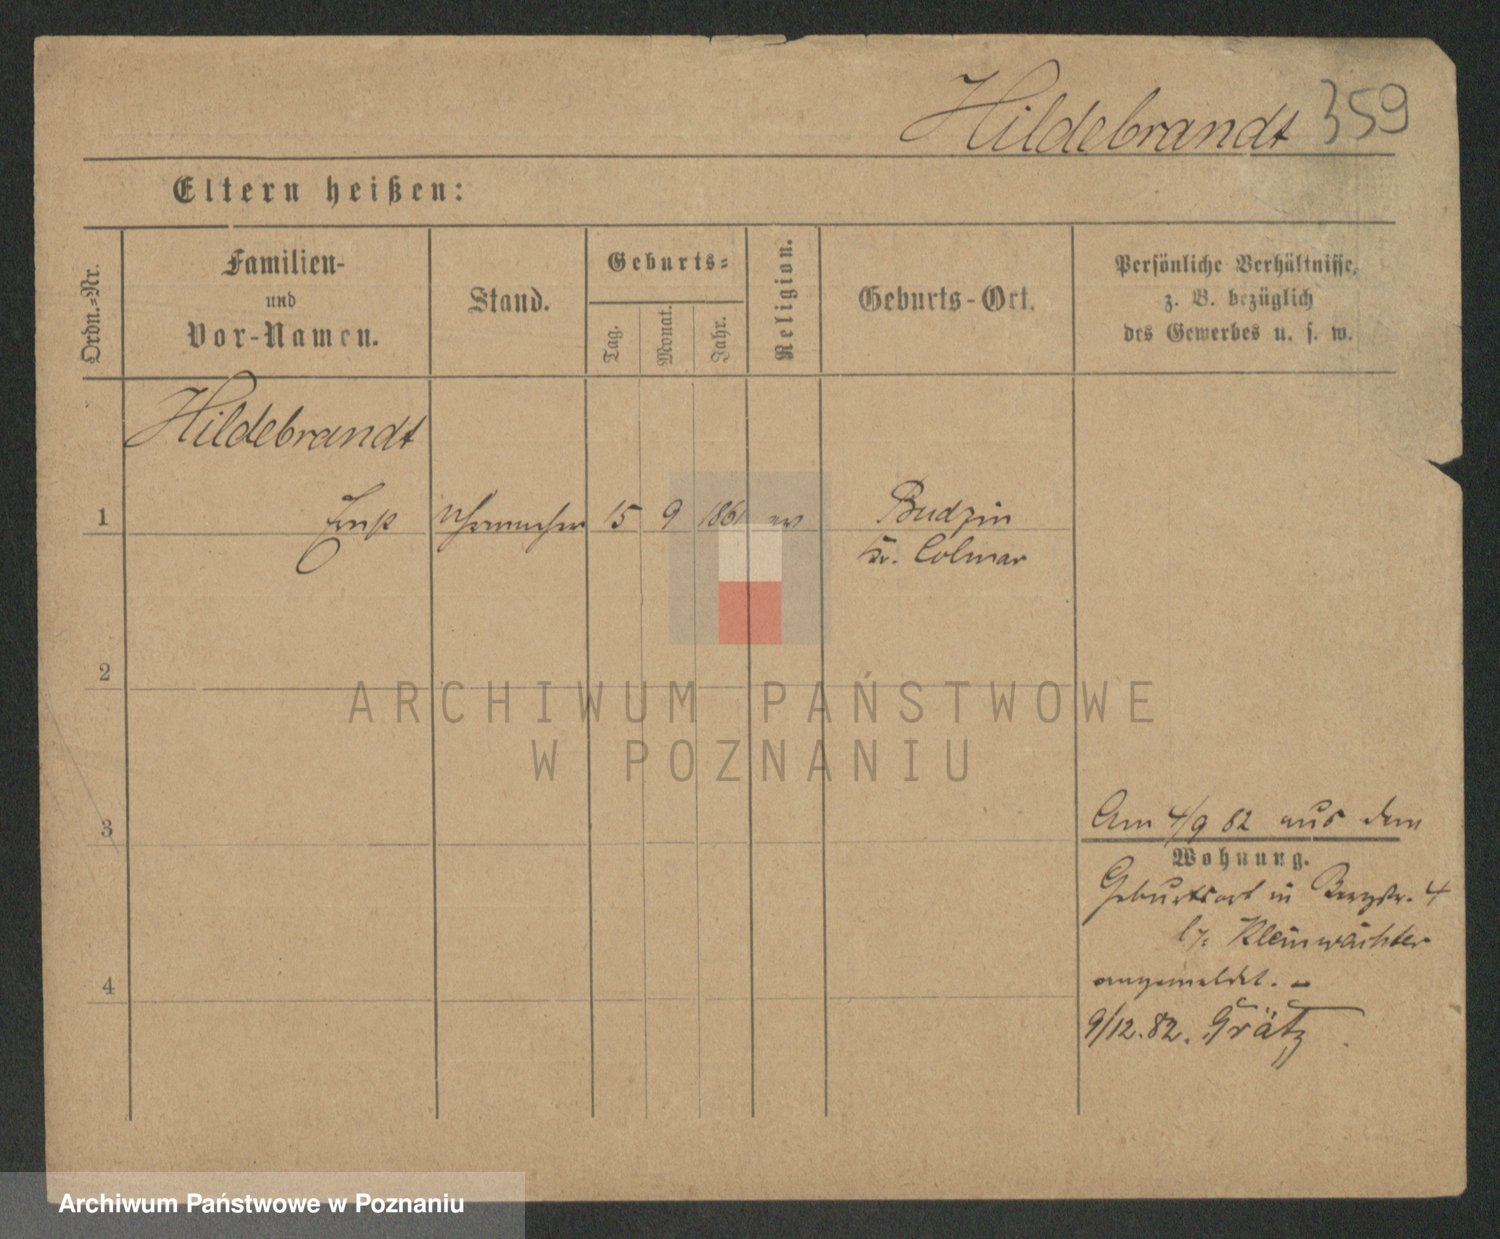 Hildebrandt 359
Eltern heißen:
Ordn.=Nr.
Familien-
und
Vor-Namen.
Stand.
Geburts=
Tag.
Monat.
Jahr.
Religion.
Geburts-Ort.
Persönliche Verhältnisse,
z. B. bezüglich
des Gewerbes u. s. w.
Hildebrandt
1 Ernst Uhrmacher 15 9 1861 ev Budzin
Kr. Colmar
2
ARCHIWUM PAŃSTWOWE
W POZNANIU
3
Am 4/9 82 aus dem
Wohnung.
Geburtsort in Bergstr. 4
b. Kleinwächter
angemeldet. -
4
9/12.82. Grätz
Archiwum Państwowe w Poznaniu